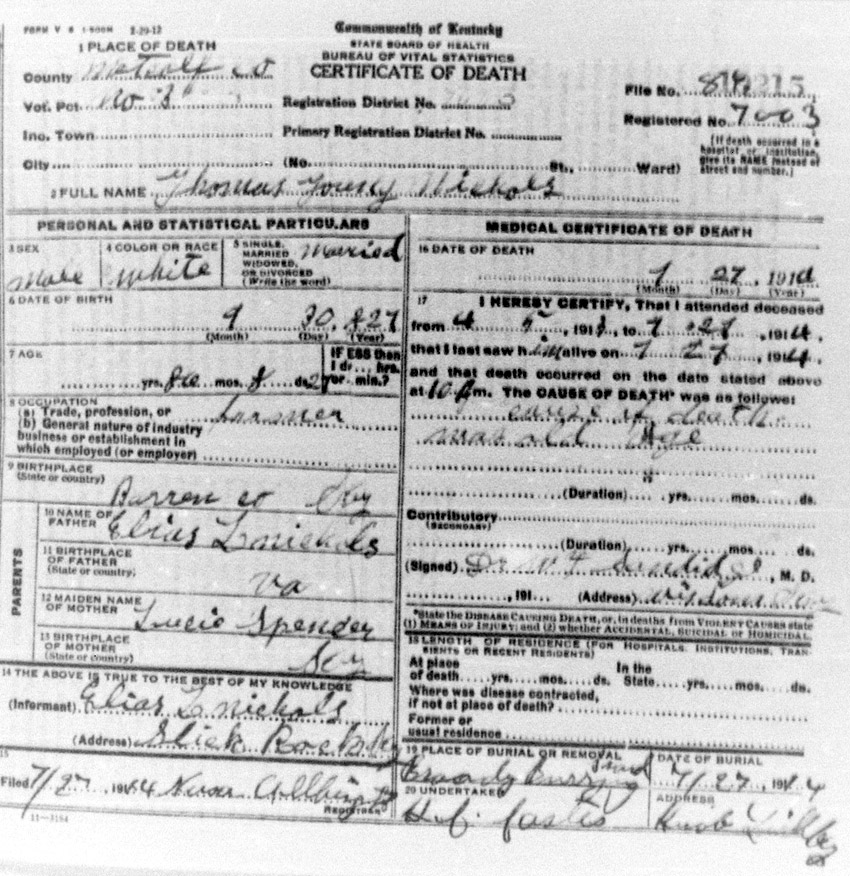 FORM V S 1-500M 2-29-12
Commonwealth of Kentucky
STATE BOARD OF HEALTH
BUREAU OF VITAL STATISTICS
CERTIFICATE OF DEATH
1 PLACE OF DEATH
County Metcalf co
Vot. Pct. No
Inc. Town
City (No. St., Ward)
Registration District No.
Primary Registration District No.
File No. 215
Registered No. 7003
(If death occurred in a hospital or institution, give its NAME instead of street and number.)
2 FULL NAME Thomas Young Nichols
PERSONAL AND STATISTICAL PARTICULARS
3 SEX Male
4 COLOR OR RACE White
5 SINGLE, MARRIED WIDOWED, OR DIVORCED (Write the word) Married
6 DATE OF BIRTH
9 30, 827
(Month) (Day) (Year)
7 AGE
yrs. 86 mos. 8 ds. 27
IF LESS than 1 d hrs. or min.?
8 OCCUPATION
(a) Trade, profession, or Farmer
(b) General nature of industry
business or establishment in
which employed (or employer)
9 BIRTHPLACE
(State or country)
Barren co Ky
PARENTS
10 NAME OF FATHER Elias L nichols
11 BIRTHPLACE OF FATHER (State or country) Va
12 MAIDEN NAME OF MOTHER Lucie Spencer
13 BIRTHPLACE OF MOTHER (State or country) Ky
14 THE ABOVE IS TRUE TO THE BEST OF MY KNOWLEDGE
(Informant) Elias L nichols
(Address) Slick Rock Ky
15
Filed 7/27 1914
REGISTRAR
11-3184
MEDICAL CERTIFICATE OF DEATH
16 DATE OF DEATH
7 27, 1914
(Month) (Day) (Year)
17 I HEREBY CERTIFY, That I attended deceased
from 4 5, 191 , to 7 27, 1914,
that I last saw him alive on 7 27, 1914,
and that death occurred on the date stated above
at 10 m. The CAUSE OF DEATH* was as follows:
cause of death
was old Age
(Duration) yrs. mos. ds.
Contributory
(SECONDARY)
(Duration) yrs. mos. ds.
(Signed) Dr , M. D.
, 191 (Address)
*State the DISEASE CAUSING DEATH, or, in deaths from VIOLENT CAUSES state
(1) MEANS OF INJURY; and (2) whether ACCIDENTAL, SUICIDAL or HOMICIDAL.
18 LENGTH OF RESIDENCE (FOR HOSPITALS, INSTITUTIONS, TRANSIENTS OR RECENT RESIDENTS)
At place of death yrs. mos. ds. In the State yrs. mos. ds.
Where was disease contracted,
if not at place of death?
Former or
usual residence
19 PLACE OF BURIAL OR REMOVAL
DATE OF BURIAL
7/27, 1914
20 UNDERTAKER
ADDRESS
Knob Lick Ky